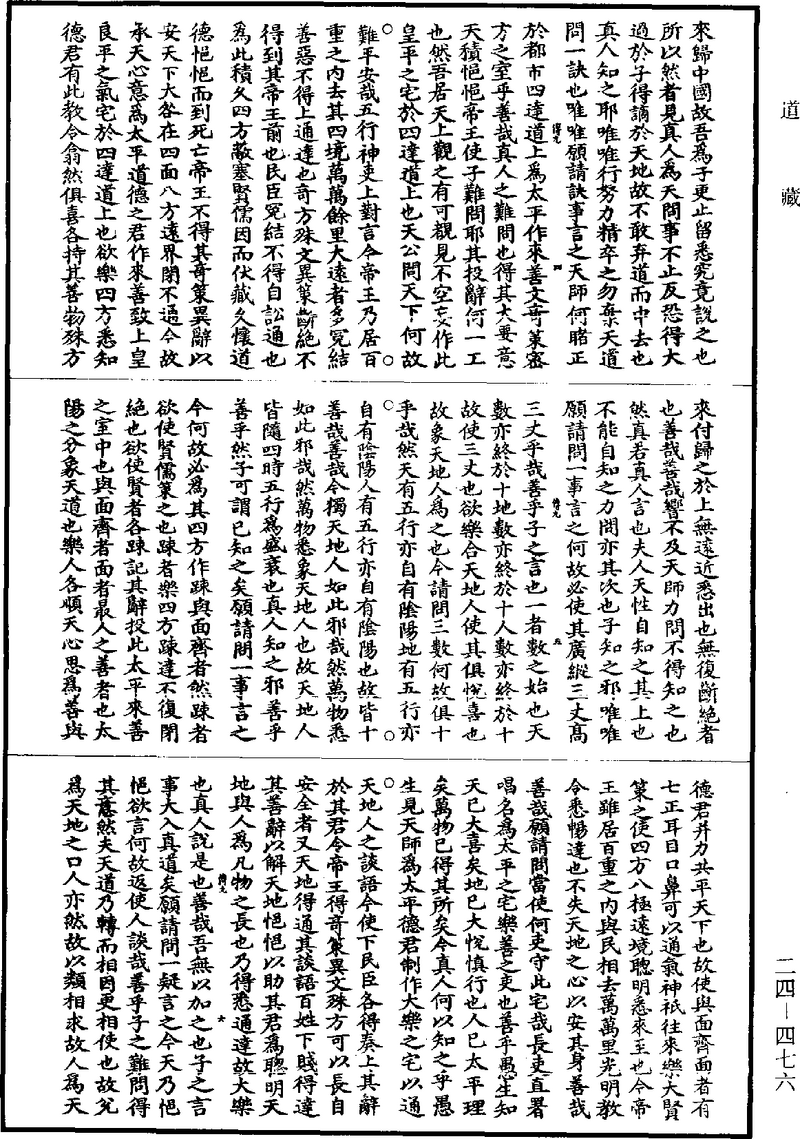 道藏
來歸中國故吾爲子更止留悉究竟說之也
所以然者見真人爲天問事不止反恐得大
過於子得謫於天地故不敢弃道而中去也
真人知之耶唯唯行努力精卒之勿棄天道
問一訣也唯唯願請訣事言之天師何睹正
於都市四達道上爲太平作來善文奇策密
四
方之室乎善哉真人之難問也得其大要意
天積悒悒帝王使子難問耶其投辭何一工
也然吾居天上觀之有可觀見不空妄作此
皇平之宅於四達道上也天公問天下何故
難平安哉五行神吏上對言今帝王乃居百
重之內去其四境萬萬餘里大遠者多冤結
善惡不得上通達也奇方殊文異策斷絕不
得到其帝王前也民臣冤結不得自訟通也
爲此積久四方蔽塞賢儒因而伏藏久懷道
德悒悒而到死亡帝王不得其奇策異辭以
安天下大咎在四面八方遠界閉不通今故
承天心意爲太平道德之君作來善致上皇
良平之氣宅於四達道上也欲樂四方悉知
德君有此教令翕然俱喜各持其善物殊方
來付歸之於上無遠近悉出也無復斷絕者
也善哉善哉響不及天師力問不得知之也
然真若真人言也夫人天性自知之其上也
不能自知之力問亦其次也子知之邪唯唯
願請問一事言之何故必使其廣縱三丈高
三丈乎哉善乎子之言也一者數之始也天
五
數亦終於十地數亦終於十人數亦終於十
故使三丈也欲樂合天地人使其俱悅喜也
故象天地人爲之也今請問三數何故俱十
乎哉然天有五行亦自有陰陽地有五行亦
自有陰陽人有五行亦自有陰陽也故皆十
善哉善哉今獨天地人如此邪哉然萬物悉
如此邪哉然萬物悉象天地人也故天地人
皆隨四時五行爲盛衰也真人知之邪善乎
善乎然子可謂已知之矣願請問一事言之
今何故必爲其四方作踈與面齊者然踈者
欲使賢儒策之也踈者樂四方踈達不復閉
絕也欲使賢者各踈記其辭投此太平來善
之室中也與面齊者面者最人之善者也太
陽之分象天道也樂人各順天心思爲善與
德君并力共平天下也故使與面齊面者有
七正耳目口鼻可以通氣神祇往來樂大賢
策之使四方八極遠境聰明悉來至也今帝
王雖居百重之內與民相去萬萬里光明教
令悉暢達也不失天地之心以安其身善哉
善哉願請問當使何吏守此宅哉長吏直署
唱名爲太平之宅樂善之吏也善乎愚生知
天已大喜矣地已大悅慎行也人已太平理
矣萬物已得其所矣今真人何以知之乎愚
生見天師爲太平德君制作大樂之宅以通
天地人之談語今使下民臣各得奏上其辭
於其君今帝王得奇策異文殊方可以長自
安全者又天地得通其談語百姓下賤得達
其善辭以解天地悒悒以助其君爲聰明天
地與人爲凡物之長也乃得悉通達故大樂
六
也真人說是也善哉吾無以加之也子之言
事大入真道矣願請問一疑言之今天乃悒
悒欲言何故返使人談哉善乎子之難問得
其意然夫天道乃轉而相因更相使也故兊
爲天地之口人亦然故以類相求故人爲天
二四—四七六